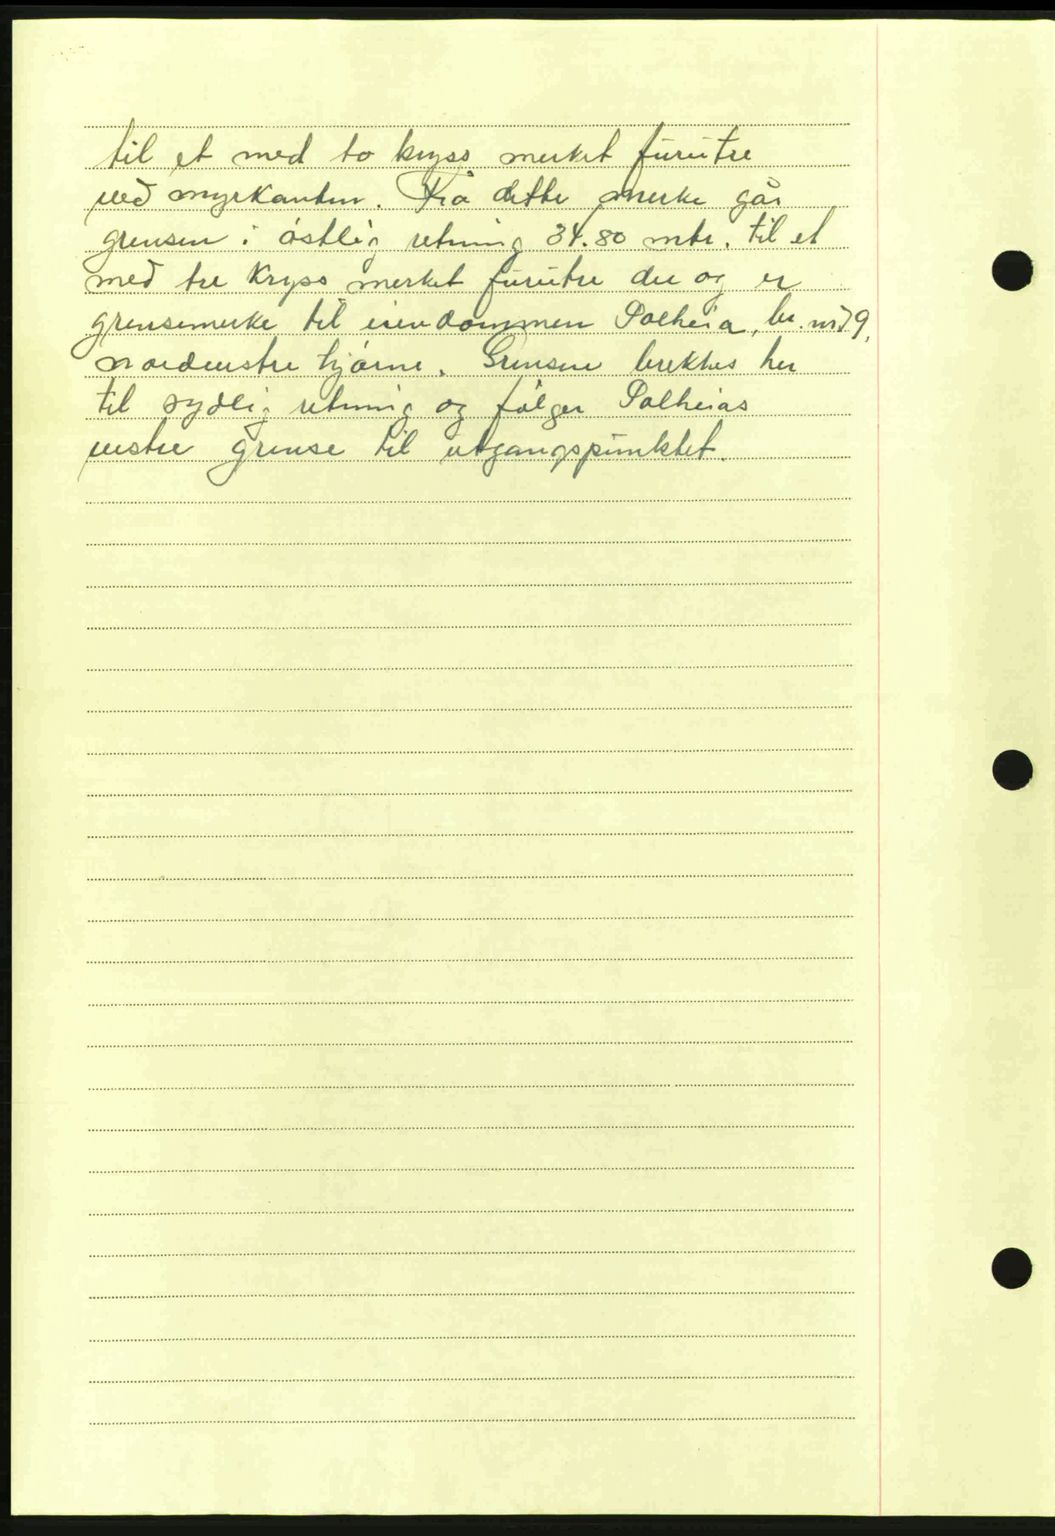 til et med to kryss merket furutre
ved myrkanten. Fra dette merke går
grensen i østlig retning 34.80 mtr. til et
med tre kryss merket furutre der og er
grensemerke til eiendommen Solheia, br. nr 79,
nordvestre hjørne. Grensen brektes her
til sydlig retning og følger Solheias
vestre grense til utgangspunktet.